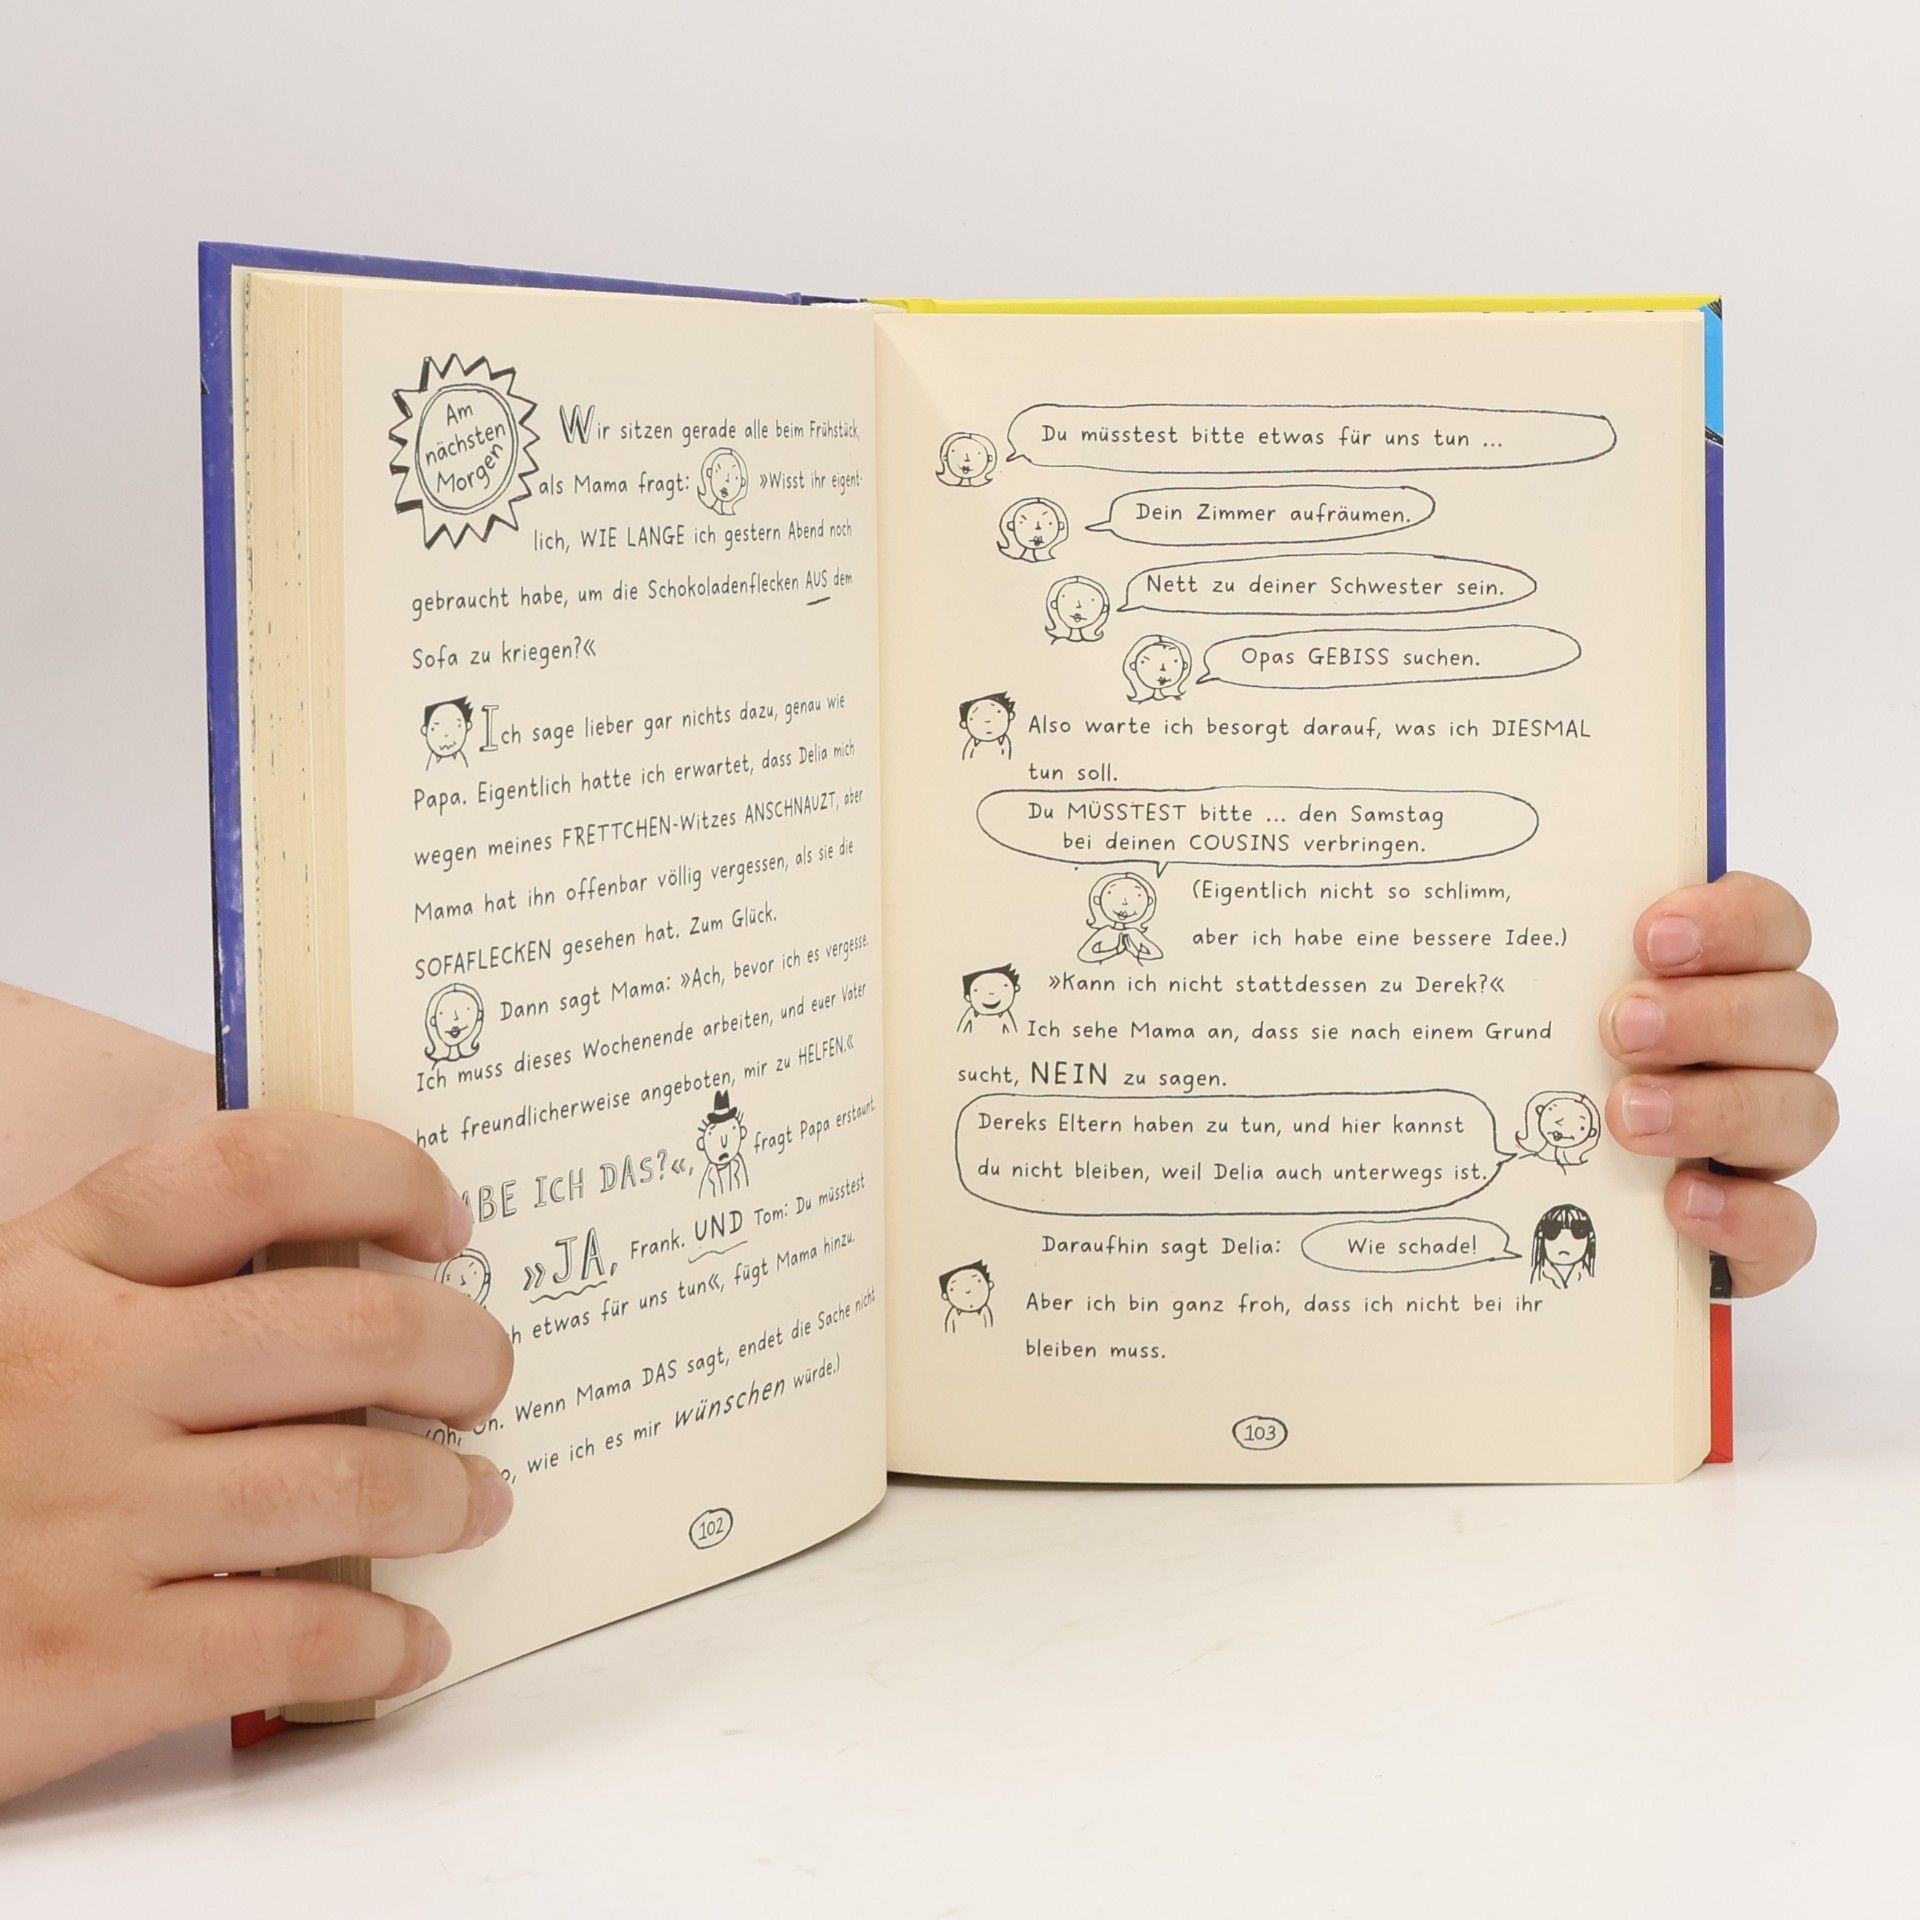 Am
nächsten
Morgen
Wir sitzen gerade alle beim Frühstück,
als Mama fragt: »Wisst ihr eigent-
lich, WIE LANGE ich gestern Abend noch
gebraucht habe, um die Schokoladenflecken AUS dem
Sofa zu kriegen?«
Ich sage lieber gar nichts dazu, genau wie
Papa. Eigentlich hatte ich erwartet, dass Delia mich
wegen meines FRETTCHEN-Witzes ANSCHNAUZT, aber
Mama hat ihn offenbar völlig vergessen, als sie die
SOFAFLECKEN gesehen hat. Zum Glück.
Dann sagt Mama: »Ach, bevor ich es vergesse.
Ich muss dieses Wochenende arbeiten, und euer Vater
hat freundlicherweise angeboten, mir zu HELFEN.«
ICH DAS?«, fragt Papa erstaunt.
»JA, Frank. UND Tom: Du müsstest
etwas für uns tun«, fügt Mama hinzu.
(Oh, oh. Wenn Mama DAS sagt, endet die Sache nicht
wie ich es mir wünschen würde.)
102
Du müsstest bitte etwas für uns tun ...
Dein Zimmer aufräumen.
Nett zu deiner Schwester sein.
Opas GEBISS suchen.
Also warte ich besorgt darauf, was ich DIESMAL
tun soll.
Du MÜSSTEST bitte ... den Samstag
bei deinen COUSINS verbringen.
(Eigentlich nicht so schlimm,
aber ich habe eine bessere Idee.)
»Kann ich nicht stattdessen zu Derek?«
Ich sehe Mama an, dass sie nach einem Grund
sucht, NEIN zu sagen.
Dereks Eltern haben zu tun, und hier kannst
du nicht bleiben, weil Delia auch unterwegs ist.
Daraufhin sagt Delia: Wie schade!
Aber ich bin ganz froh, dass ich nicht bei ihr
bleiben muss.
103